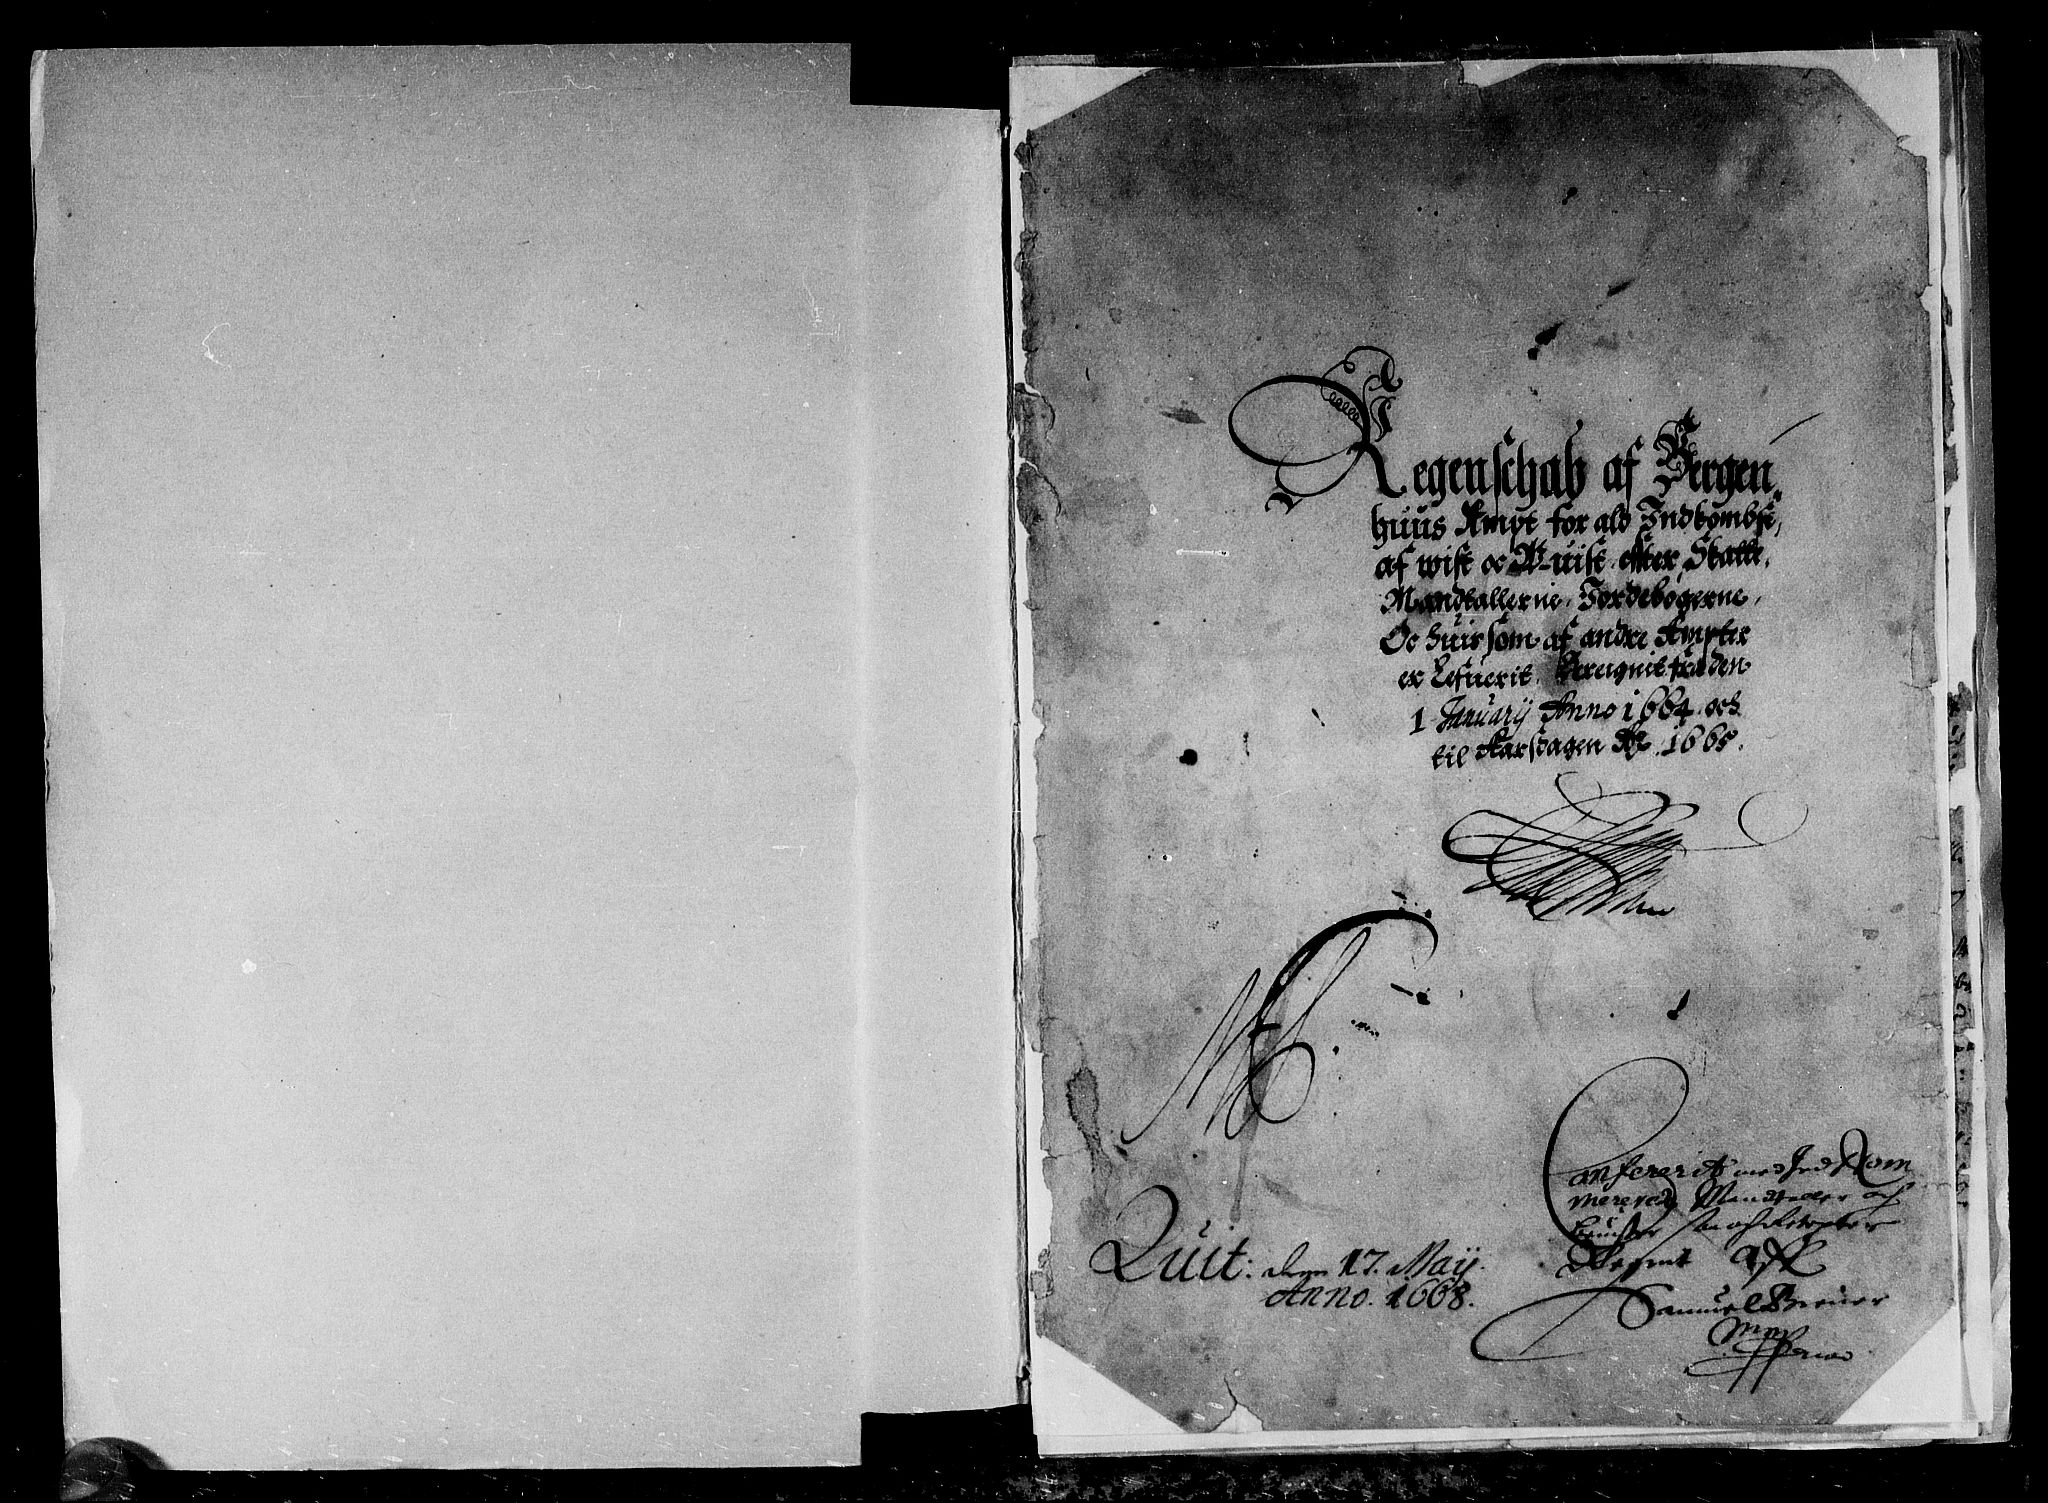 Regenschab af Bergen
huus Ampt for als Indkombst,
af wist oc Wuist efter Skatte,
Mandtallerne, Jordebøgerne,
Oc huis som af andre Ampter
er Lefuerit, Bereignit fra den
1 Januarij Anno 1664 och
til Aarsdagen Ao 1665.
Quit: den 17. Maij.
Anno. 1668.
Confererit med Ind Kom
Mandtaller och
Samuel